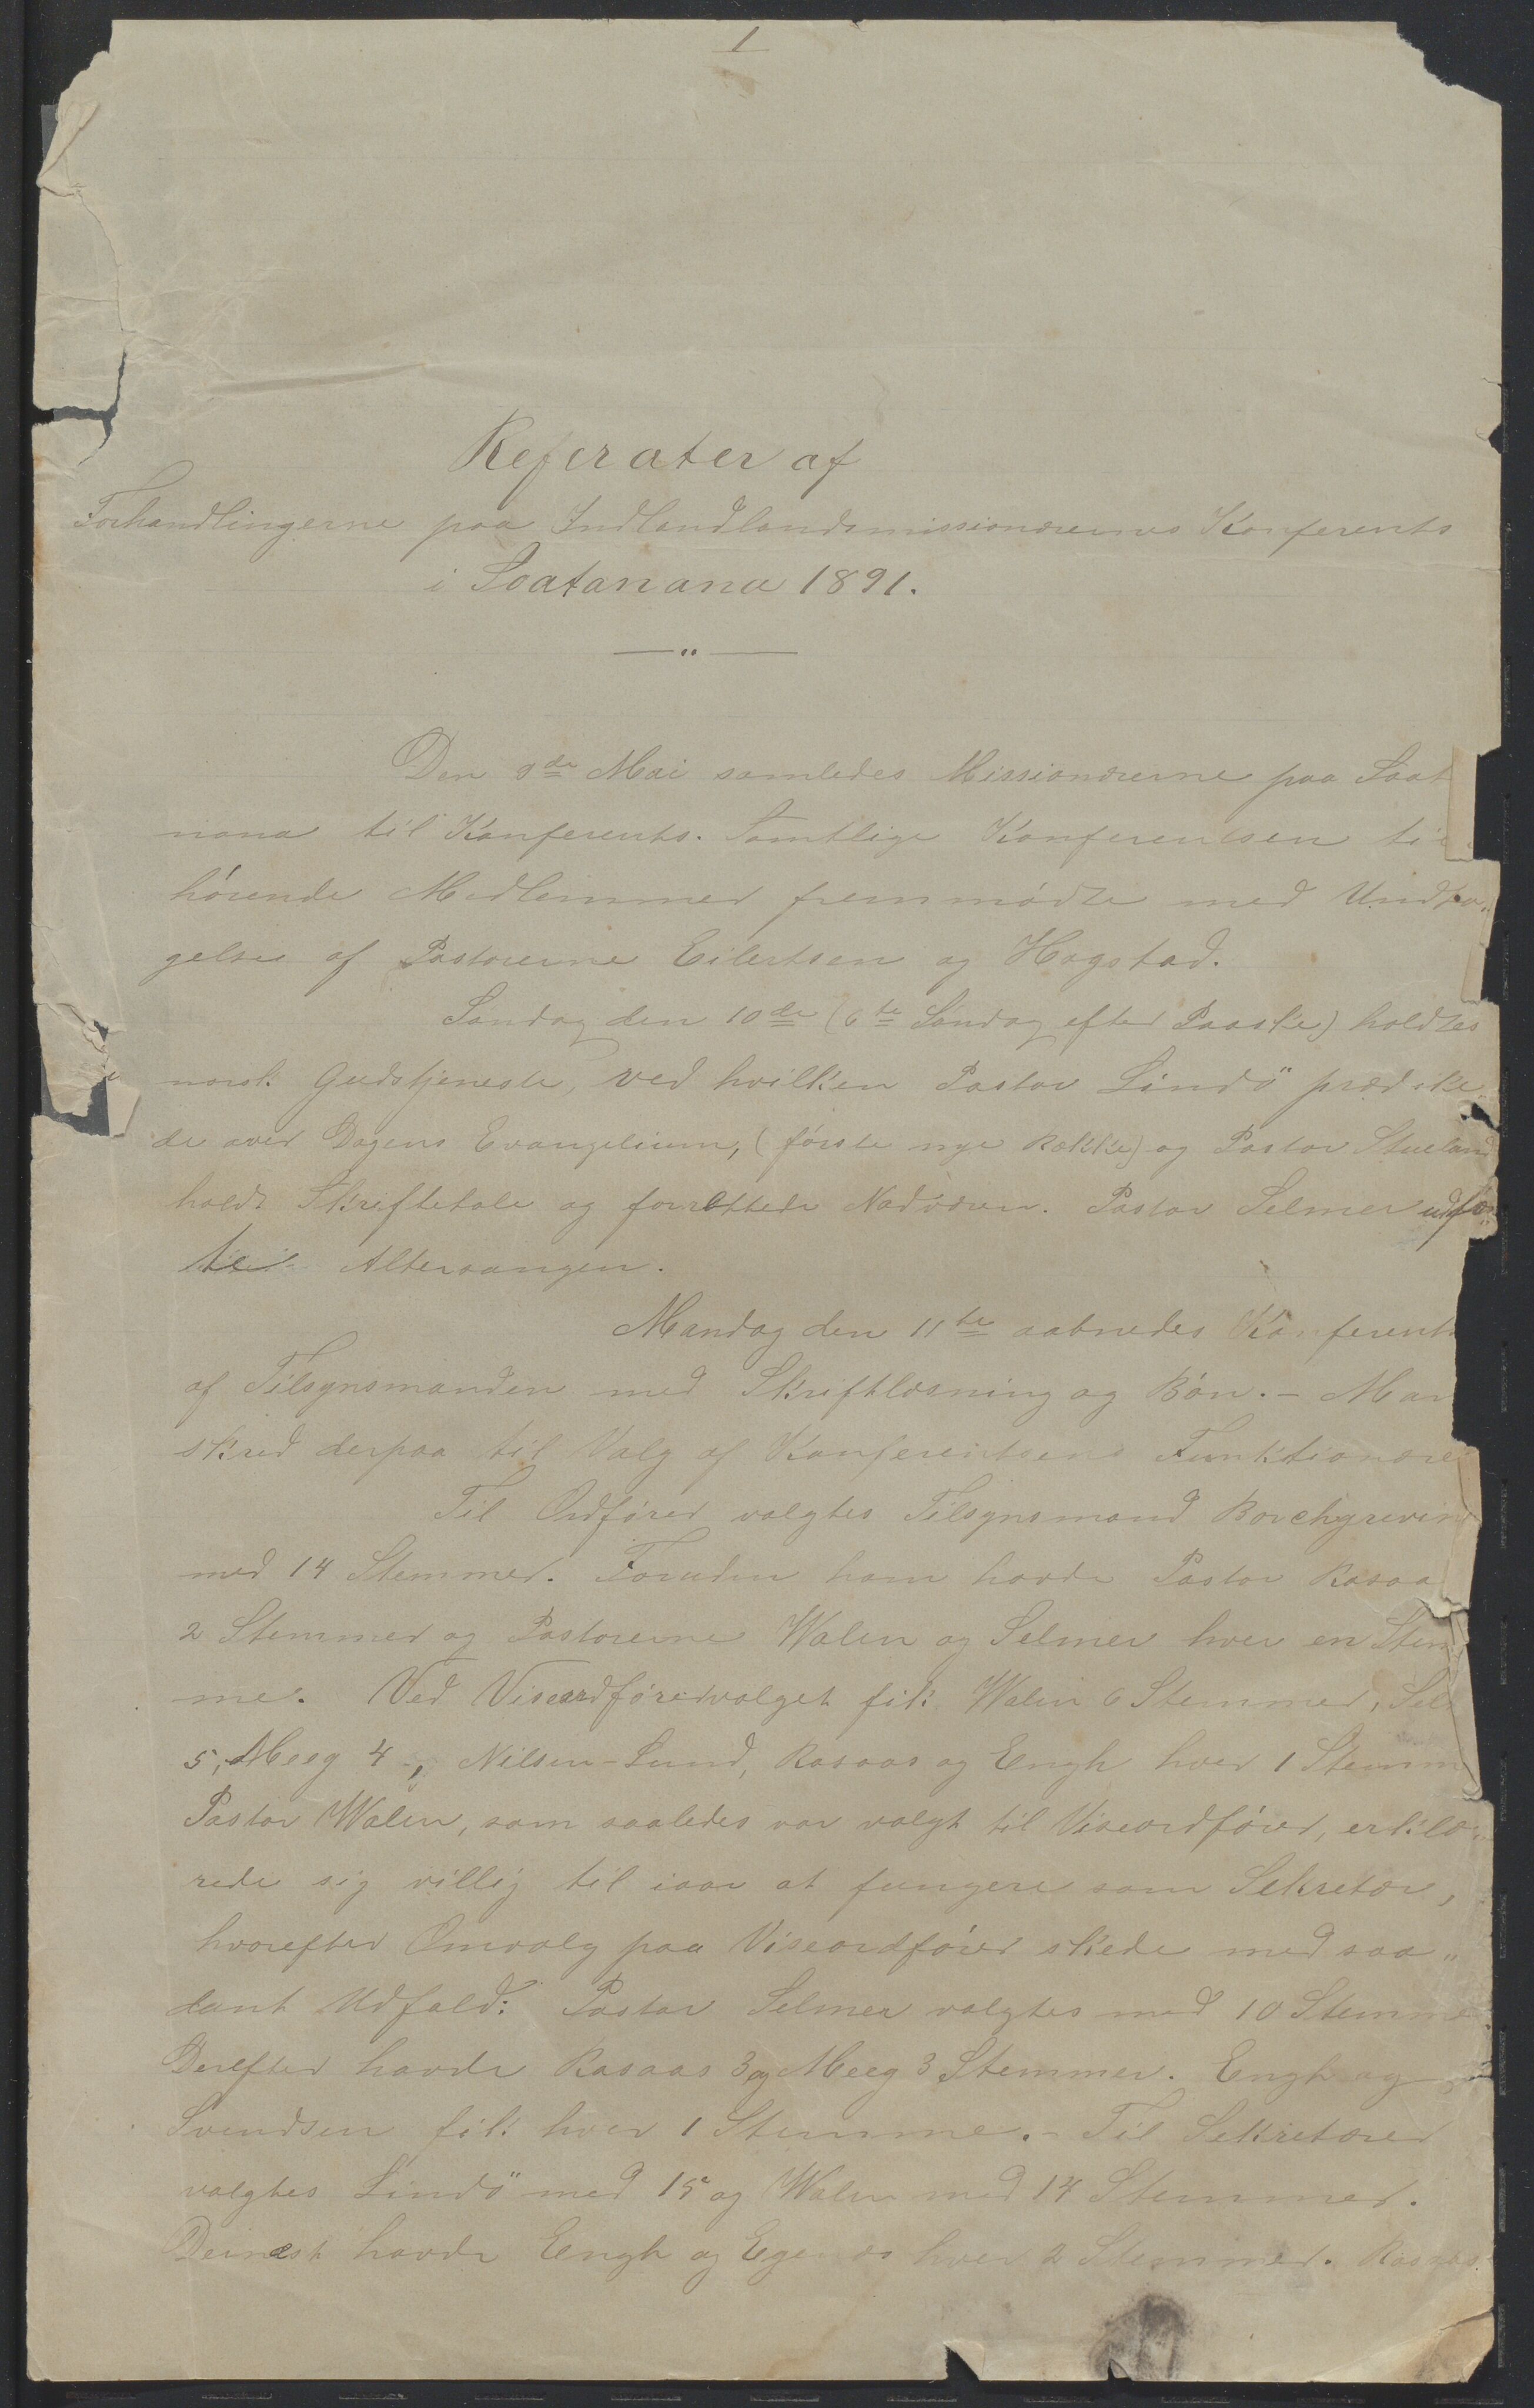 1
Referater af
Forhandlingerne paa Indlandlandsmissionærernes Konferents
i Soatanana 1891.
Den 9de Mai samledes Missionærerne paa Soat
nana til Konferents. Samtlige Konferentsen til
hörende Medlemmer fremmödte med Undta„
gelse af Pastorerne Eilertsen og Hagstad.
Söndag den 10de (6te Söndag efter Paaske) holdtes
norsk Gudstjeneste, ved hvilken Pastor Lindö prædike„
de over Dagens Evangelium, (förste nye Række) og Pastor Stueland
holdt Skriftetale og forrettede Nadveren. Pastor Selmer udför„
te Altersangen.
Mandag den 11te aabnedes Konferents
af Tilsynsmanden med Skriftlæsning og Bön. – Man
skred derpaa til Valg af Konferentsens Funktionære
Til Ordförer valgtes Tilsynsmand Borchgrevink
med 14 Stemmer. Foruden ham havde Pastor Rosaa
2 Stemmer og Pastorerne Walen og Selmer hver en Stem„
me. Ved Viseordförervalget fik Walen 6 Stemmer, Sel
5, Meeg 4, Nilsen-Lund, Rosaas og Engh hver 1 Stemm
Pastor Walen, som saaledes var valgt til Viseordförer, erklæ„
rede sig villig til iaar at fungere som Sekretær,
hvorefter Omvalg paa Viseordförer skede med saa„
dant Udfald: Pastor Selmer valgtes med 10 Stemme
Derefter havde Rosaas 3 og Meeg 3 Stemmer. Engh og
Svendsen fik hver 1 Stemme. – Til Sekretærer
valgtes Lindö med 15 og Walen med 14 Stemmer.
Dernæst havde Engh og Egenæs hver 2 Stemmer. Rosaas